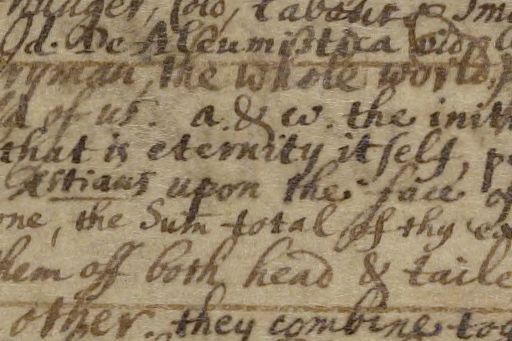 hunger, Cold, labour & Sm
d. De Aleumistica
ryman, the whole world,
ld of us. a. & ω. the inith
that is eternity itself, p
stians upon the face of
one, the Sum total of thy ea
them off both head & taile
other. they combine tog